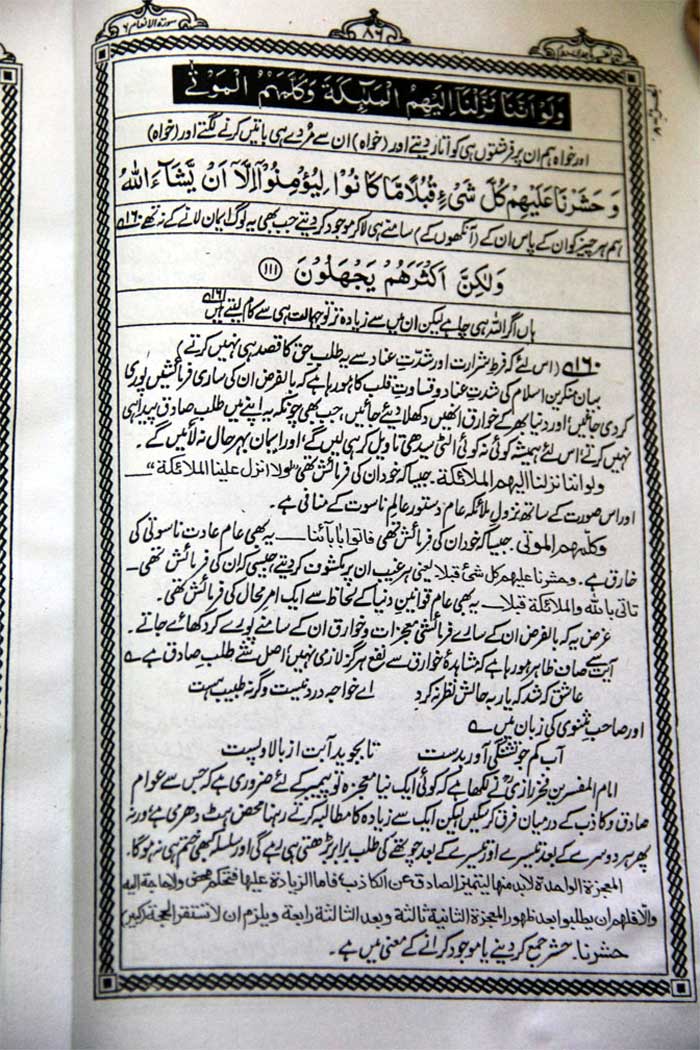 سورۃ الانعام ۶
۸۶
وَلَوْ اَنَّنَا نَزَّلْنَا اِلَيْهِمُ الْمَلٰٓئِكَةَ وَكَلَّمَهُمُ الْمَوْتٰى
اور خواہ ہم ان پر فرشتوں ہی کو اتار دیتے اور (خواہ) ان سے مُردے ہی باتیں کرنے لگتے اور (خواہ)
وَحَشَرْنَا عَلَيْهِمْ كُلَّ شَيْءٍ قُبُلًا مَّا كَانُوْا لِيُؤْمِنُوْٓا اِلَّآ اَنْ يَّشَآءَ اللّٰهُ
ہم ہر چیز کو ان کے پاس ان کے (آنکھوں کے) سامنے ہی لا کر موجود کر دیتے جب بھی یہ لوگ ایمان لانے کے نہ تھے ۱۶۰
وَلٰكِنَّ اَكْثَرَهُمْ يَجْهَلُوْنَ ۝۱۱۱
ہاں اگر اللہ ہی چاہے لیکن ان میں سے زیادہ تر تو جہالت ہی سے کام لیتے ہیں ۱۶۱
۱۶۰ (اس لئے کہ فرطِ شرارت اور شدّتِ عناد سے یہ طلبِ حق کا قصد ہی نہیں کرتے)
بیان منکرین اسلام کی شدتِ عناد و قساوتِ قلب کا ہو رہا ہے کہ بالفرض ان کی ساری فرمائشیں پوری
کر دی جائیں، اور دنیا بھر کے خوارق انھیں دکھلا دیئے جائیں، جب بھی چونکہ یہ اپنے میں طلب صادق پیدا ہی
نہیں کرتے، اس لئے ہمیشہ کوئی نہ کوئی الٹی سیدھی تاویل کر ہی لیں گے، اور ایمان بہرحال نہ لائیں گے۔
ولو اننا نزلنا الیھم الملائکة۔ جیسا کہ خود ان کی فرمائش تھی "لولا انزل علینا الملائکة"
اور اس صورت کے ساتھ نزولِ ملائکہ عام دستور عالمِ ناسوت کے منافی ہے۔
وکلمھم الموتی۔ جیسا کہ خود ان کی فرمائش تھی فاتوا بابآئنا — یہ بھی عام عادت ناسوتی کی
خارق ہے۔ وحشرنا علیھم کل شیٔ قبلا یعنی ہر غیب ان پر مکشوف کر دیتے، جیسی کہ ان کی فرمائش تھی۔
تاتی باللہ والملائکة قبلا — یہ بھی عام قوانینِ دنیا کے لحاظ سے ایک امرِ محال کی فرمائش تھی۔
غرض یہ کہ بالفرض ان کے سارے فرمائشی معجزات و خوارق ان کے سامنے پورے کر دکھائے جاتے۔
آیت سے صاف ظاہر ہو رہا ہے کہ مشاہدۂ خوارق سے نفع ہرگز لازمی نہیں، اصل شئے طلبِ صادق ہے ؎
عاشق کہ شد کہ یار بحالش نظر نہ کرد اے خواجہ درد نیست وگر نہ طبیب ہست
اور صاحبِ مثنوی کی زبان میں ؎
آب کم جو تشنگی آور بدست تا بجوید آبت از بالا و پست
امام المفسرین فخر رازی نے لکھا ہے کہ کوئی ایک نیا معجزہ تو پیمبر کے لئے ضروری ہے کہ جس سے عوام
صادق و کاذب کے درمیان فرق کر سکیں لیکن ایک سے زیادہ کا مطالبہ کرتے رہنا محض ہٹ دھرمی ہے، ورنہ
پھر ہر دوسرے کے بعد تیسرے اور تیسرے کے بعد چوتھے کی طلب برابر بڑھتی ہی رہے گی اور سلسلہ کبھی ختم ہی نہ ہوگا۔
المعجزة الواحدة لابد منها لیتمیز الصادق عن الکاذب، فاما الزیادة علیها فتحکم محض ولاحاجة الیه
والا فلهم ان یطلبوا بعد ظهور المعجزة الثانیة ثالثة وبعد الثالثة رابعة ویلزم ان لا تستقر الحجة (کبیر)
حشرنا۔ حشر جمع کر دینے یا موجود کرانے کے معنی میں ہے۔